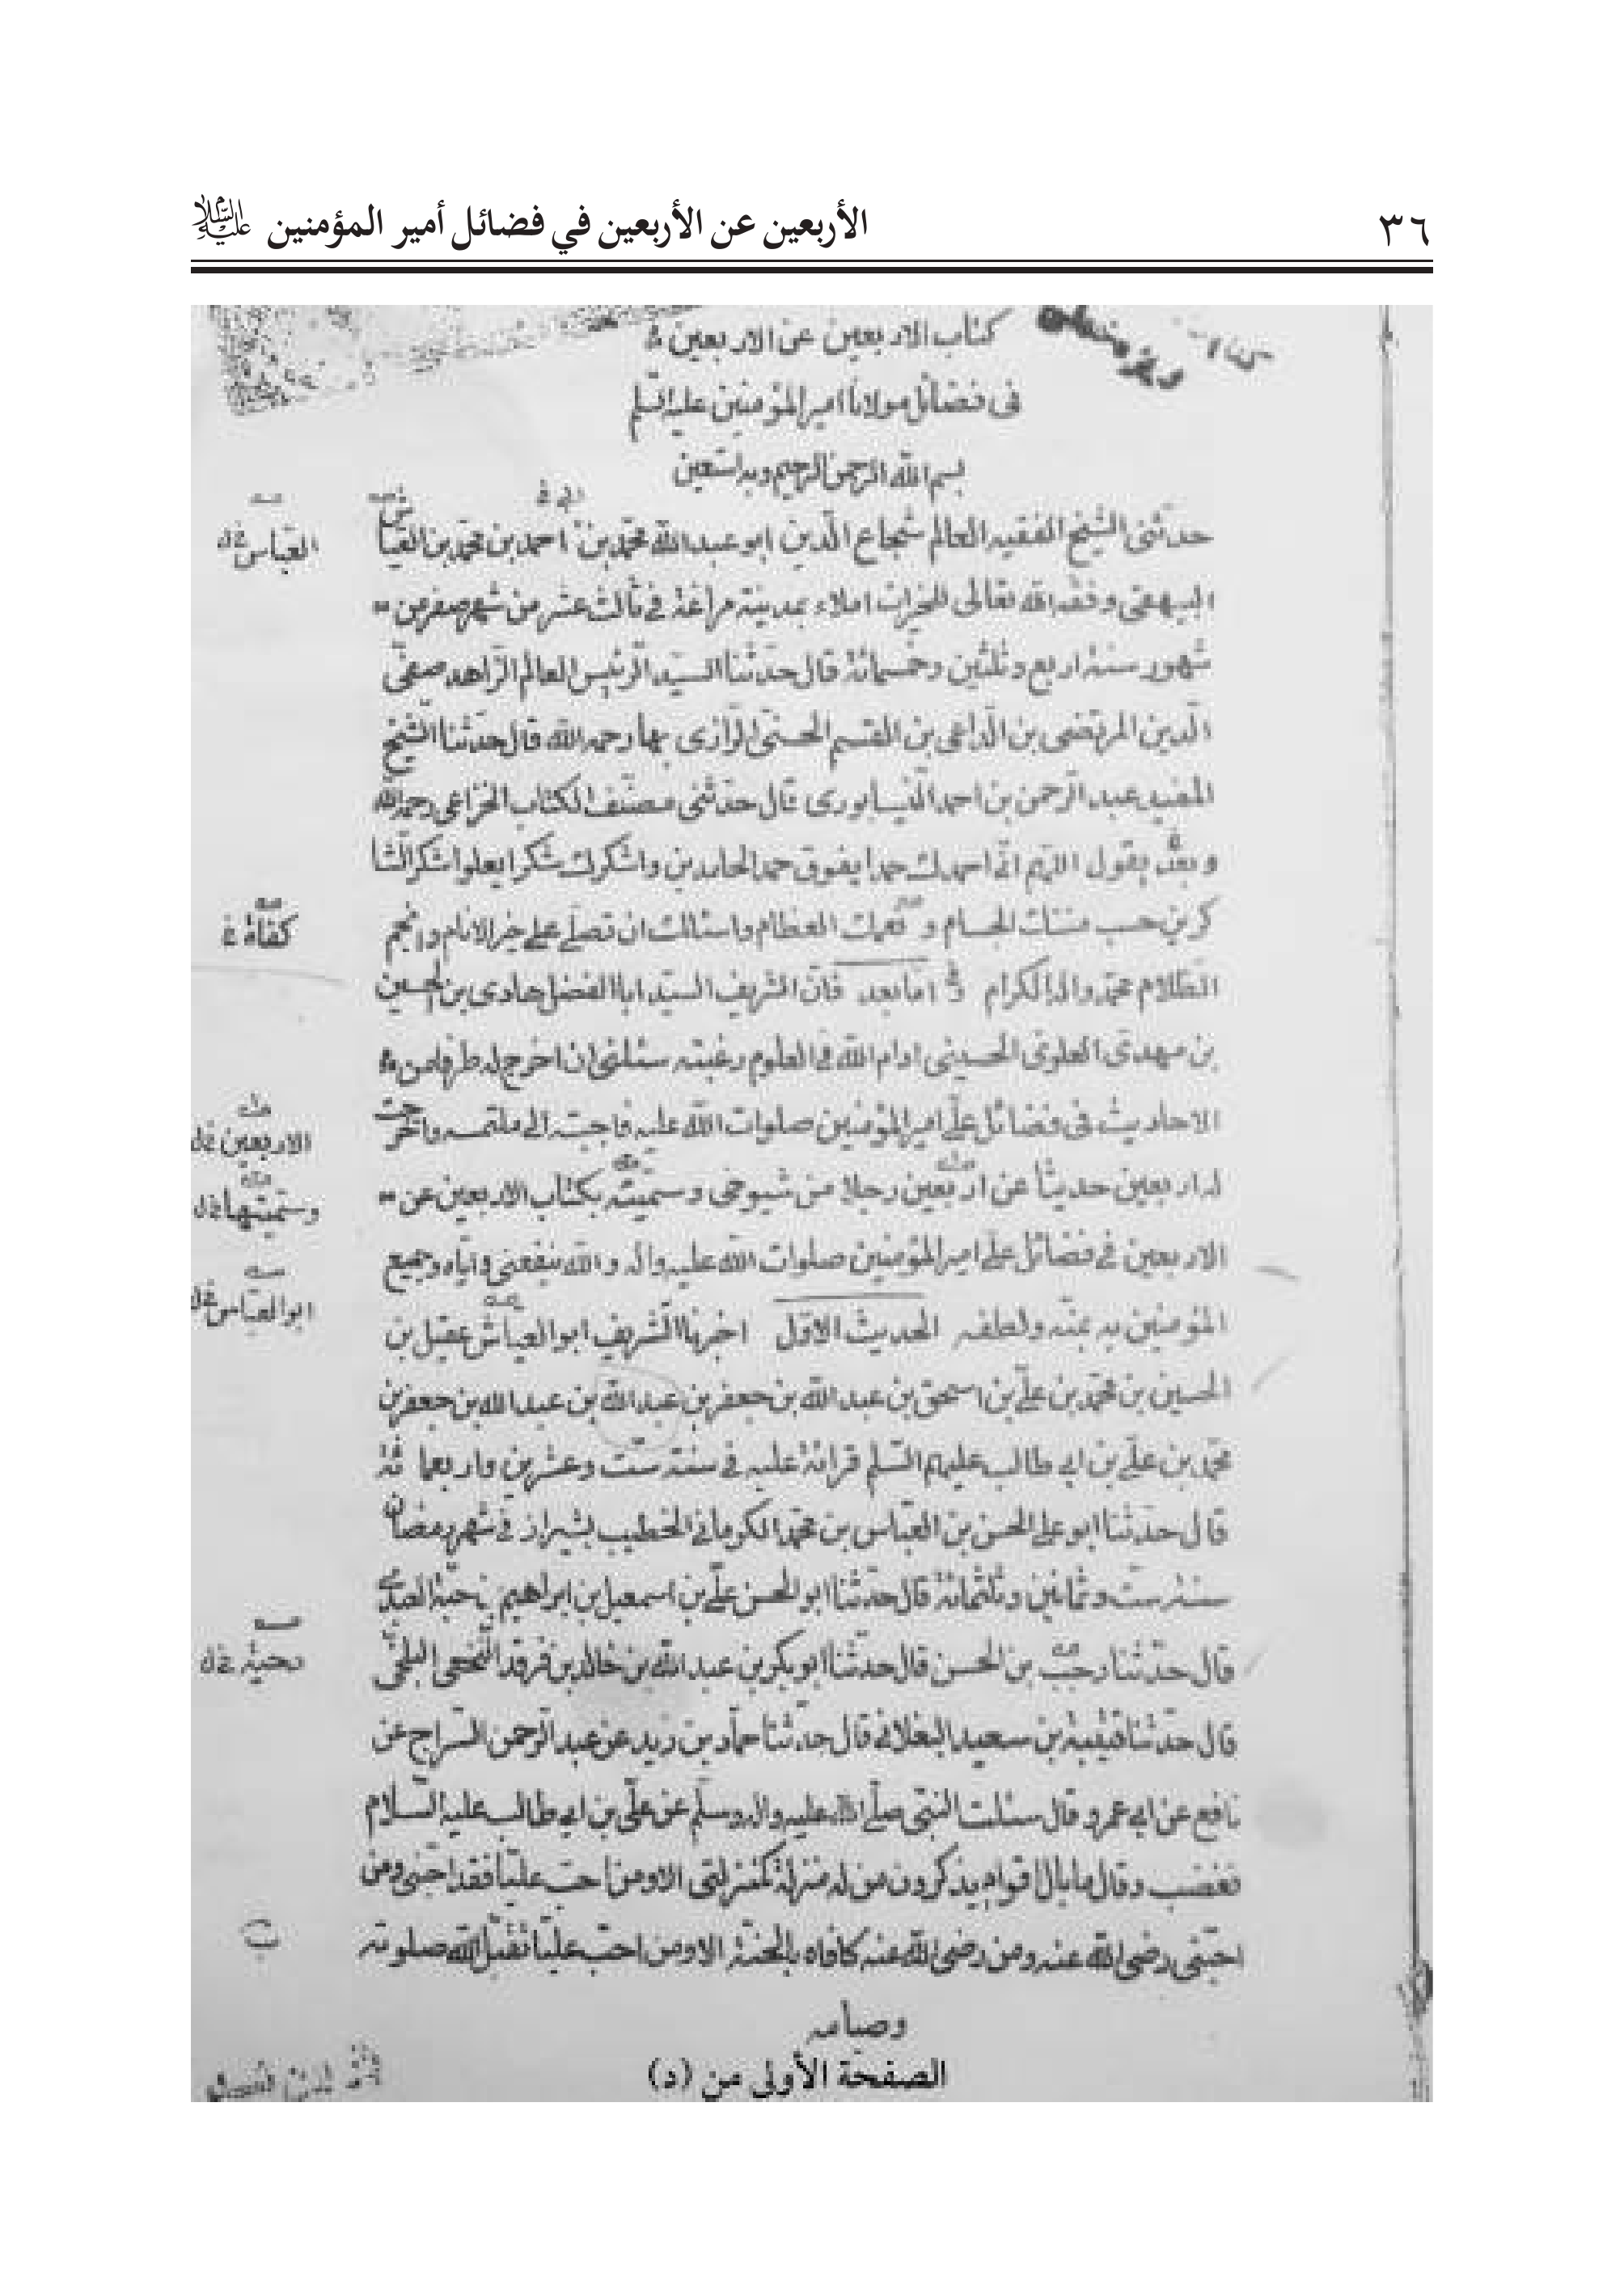 ٣٦
الأربعين عن الأربعين في فضائل أمير المؤمنين عليه السلام
كتاب الاربعين عن الاربعين
فى فضائل مولانا امير المؤمنين عليه السّلم
بسم الله الرحمن الرحيم وبه استعين
حدثنى الشيخ الفقيه العالم شجاع الدين ابو عبد الله محمّد بن احمد بن محمّد بن العبّاس
البيهقى وفقه الله تعالى للخيرات املاء بمدينة مراغة فى ثالث عشر من شهر صفر من
شهور سنة اربع وثلثين وخمسمائة قال حدثنا السيّد الرئيس العالم الزاهد صفىّ
الدين المرتضى بن الداعى بن القسم الحسنى الرازى بها رحمه الله قال حدثنا الشيخ
المفيد عبد الرحمن بن احمد النيسابورى قال حدثنى مصنف الكتاب الخزاعى رحمه الله
وبعد يقول اللهم انّى احمدك حمدا يفوق حمد الحامدين واشكرك شكرا يعلوا شكر الشا
كرين حسب مننك الجسام ونعمك العظام واسئلك ان تصلّى على خير الانام وانجم
الظلام محمّد واله الكرام امّا بعد فانّ الشريف السيّد ابا الفضل هادى بن الحسين
بن مهدى العلوىّ الحسينى ادام الله فى العلوم رغبته سئلنى ان اخرج له طرفا من
الاحاديث فى فضائل علىّ امير المؤمنين صلوات الله عليه فاجبته الى ملتمسه واخرجت
له اربعين حديثا عن اربعين رجلا من شيوخى وسمّيته بكتاب الاربعين عن
الاربعين فى فضائل علىّ امير المؤمنين صلوات الله عليه واله والله ينفعنى وايّاه وجميع
المؤمنين به بمنّه ولطفه الحديث الاوّل اخبرنا الشريف ابو العباس عقيل بن
الحسين بن محمّد بن علىّ بن اسحق بن عبد الله بن جعفر بن عبد الله بن عبد الله بن جعفر بن
محمّد بن علىّ بن ابى طالب عليهم السّلم قرائة عليه فى سنة ستّ وعشرين واربعمائة
قال حدّثنا ابو على الحسن بن العبّاس بن محمّد الكرمانى الخطيب بشيراز فى شهر رمضان
سنة ستّ وثمانين وثلثمائة قال حدّثنا ابو الحسن علىّ بن اسمعيل بن ابراهيم بن حبّة العبدى
قال حدّثنا رجب بن الحسن قال حدّثنا ابو بكر بن عبد الله بن خالد بن فرقد النخعى البلخى
قال حدّثنا قتيبة بن سعيد البغلانى قال حدّثنا حمّاد بن زيد عن عبد الرحمن السّراج عن
نافع عن ابى عمرو قال سئلت النبىّ صلّى الله عليه واله وسلّم عن علىّ بن ابى طالب عليه السّلام
فغضب وقال ما بال اقوام يذكرون من له منزلة كمنزلتى الا ومن احب عليّا فقد احبّنى ومن
احبّنى رضى الله عنه ومن رضى الله عنه كافاه بالجنّة الا ومن احبّ عليّا تقبّل الله صلوته
وصيامه
العبّاس
كفاة
الاربعين
وسمّيتها
ابو العبّاس
الصفحة الأولى من (د)